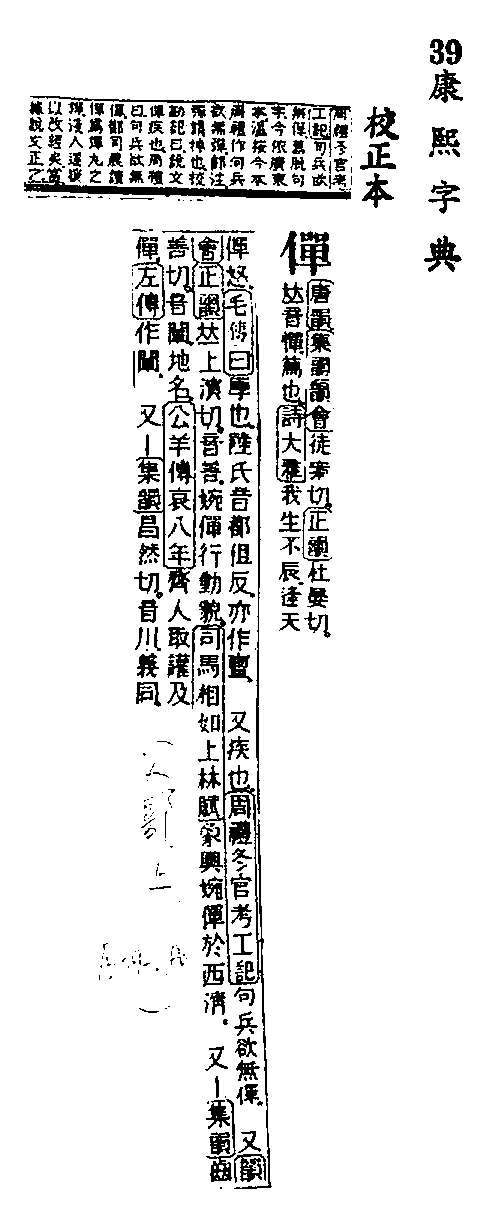 39康熙字典
校正本
僤
唐韻集韻韻會徒案切。正韻杜晏切。
𠀤音憚篤也。詩大雅我生不辰。逢天
僤怒。毛傳曰厚也。陸氏音都但反。亦作亶。 又疾也。周禮冬官考工記句兵欲無僤。 又韻
會正韻𠀤上演切。音善。婉僤行動貌。司馬相如上林賦象輿婉僤於西淸。 又丨集韻齒
善切。音闡。地名。公羊傳哀八年齊人取讙及
僤。左傳作闡。 又丨集韻昌然切。音川。義同。
周禮冬官考
工記句兵欲
無僤舊脫句
字今依廣東
本溫按今本
周禮作句兵
欲無彈鄭注
彈謂掉也校
勘記曰說文
僤疾也周禮
曰句兵欲無
僤鄭司農讀
僤爲彈丸之
彈淺人遂援
以改經矣當
據說文正之